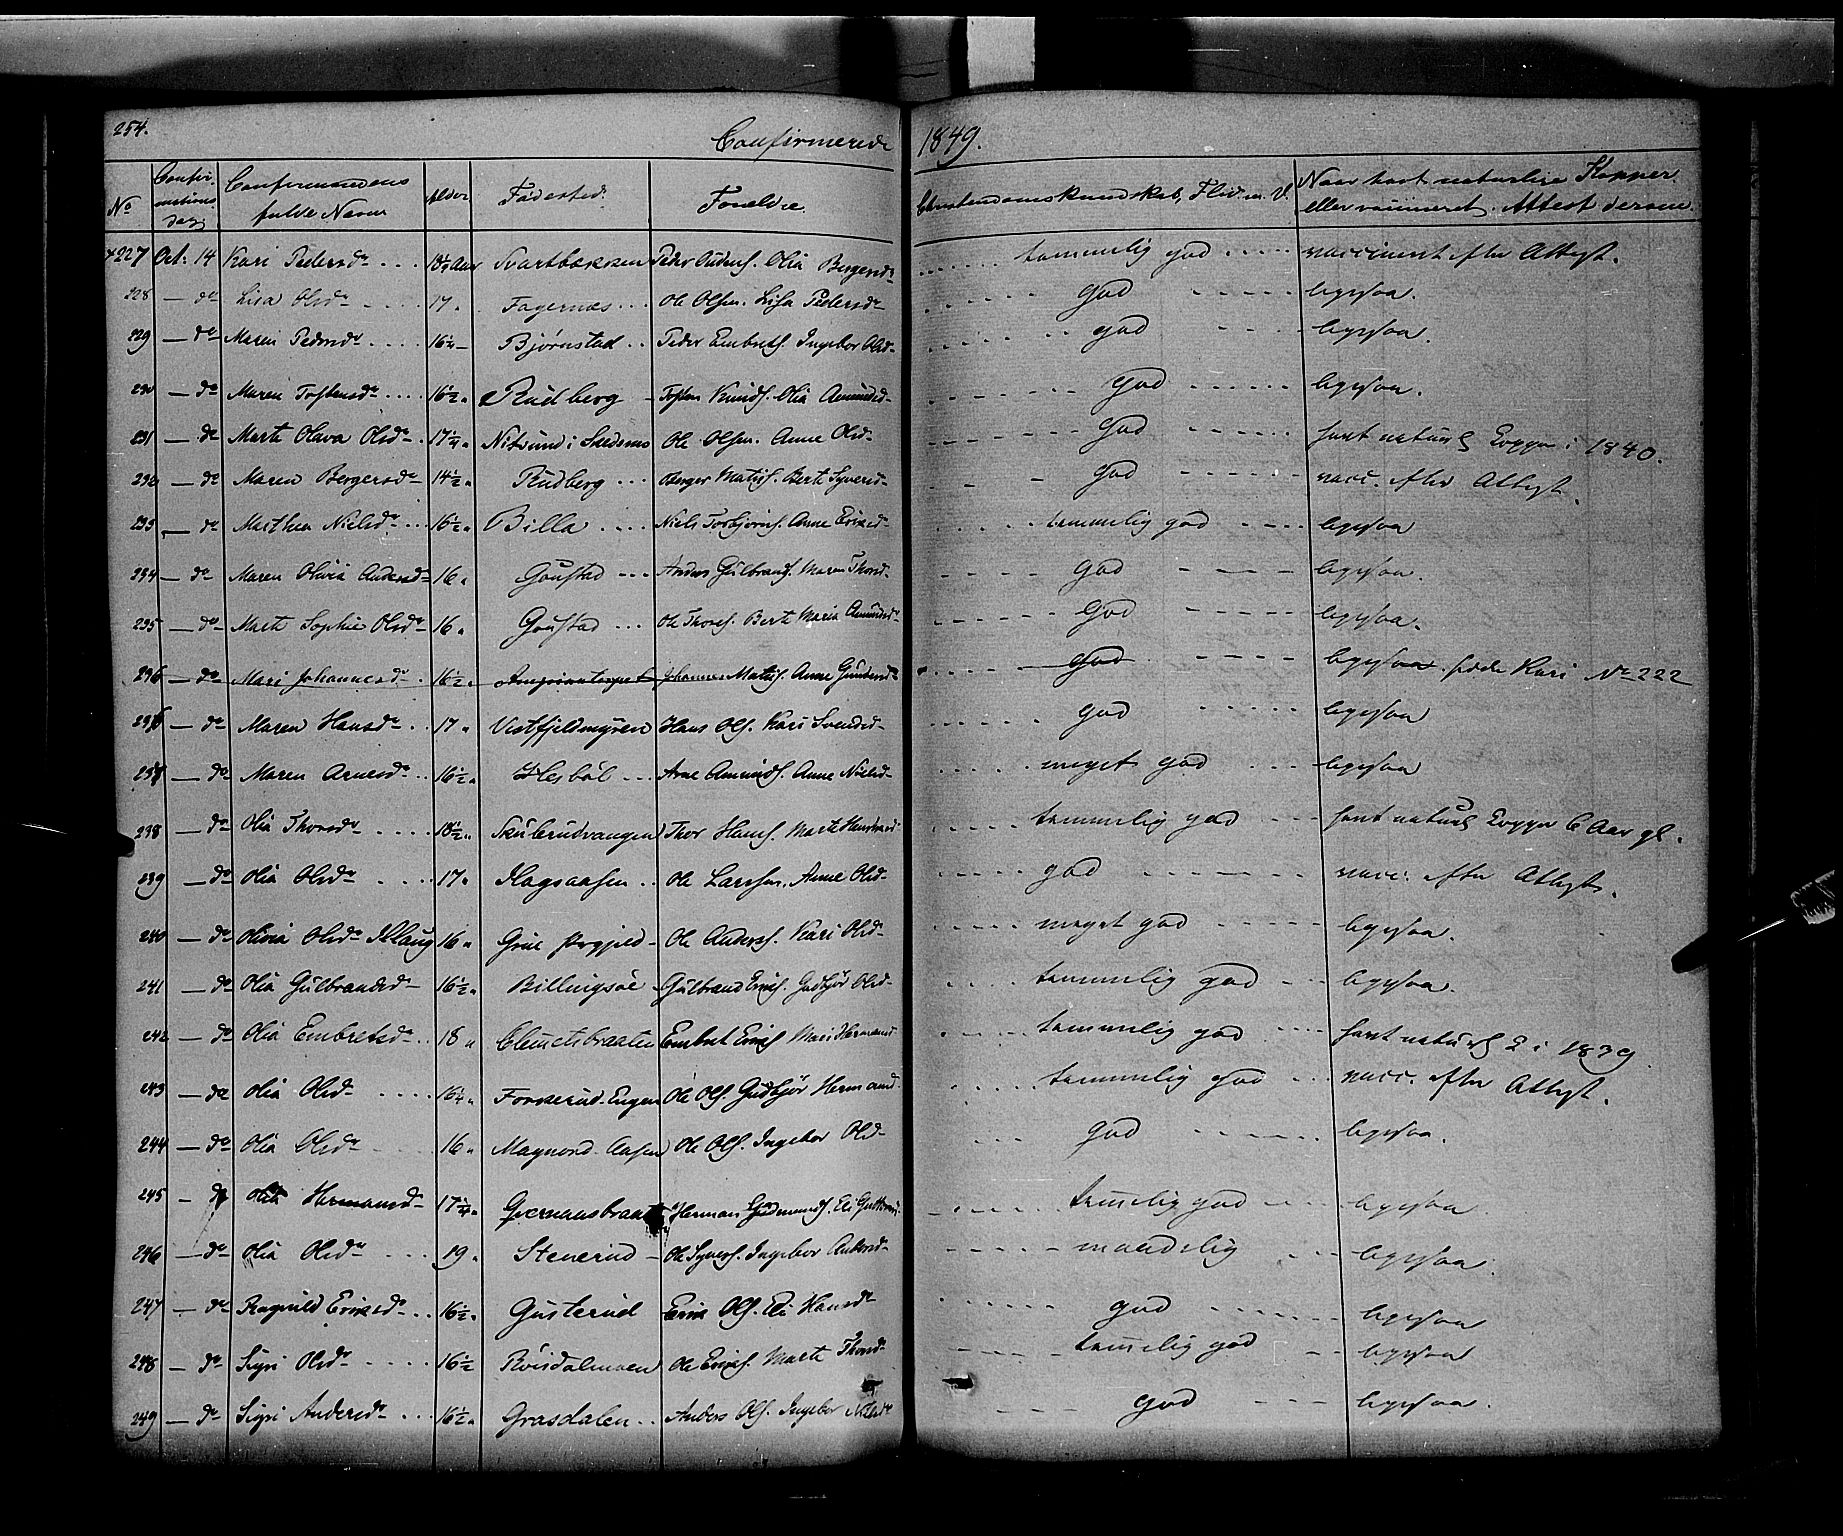 254. Confirmerede 1849.
No Confirmations dag Confirmandens fulde Navn Alder Fødested. Forældre. Christendomskundskab, Flid m. V. Naar havt naturlige Kopper eller vaccineret. Attest derom.
227 Oct. 14 Kari Pedersdr 18½ Aar Svartbækken Peder Gudmf. Olia Bergersdr temmelig god vaccineret efter Attest.
228 — do Lisa Olsdr 17 Fagernæs Ole Olsen. Lisa Pedersdr god ligesaa.
229 — do Maren Pedersdr 16¼ Bjørnstad Peder Embretf. Ingebor Olsd god ligesaa.
230 — do Maren Tostensdr 16½ Rudberg Tosten Knudf. Olia Amundsd god ligesaa.
231 — do Marte Olava Olsdr 17¼ Nitsund i Skedsmo Ole Olsen. Anne Olsd god havt naturl Kopper i 1840.
232 — do Maren Bergersdr 14½ Rudberg Berger Matisf. Berte Syversd god vacc. efter Attest.
233 — do Marthea Nielsdr 16½ Billa Niels Torbjørnf. Anne Eriksd temmelig god ligesaa
234 — do Maren Olivia Andersd 16 Goustad Anders Gulbrandf. Maren Thorsd god ligesaa.
235 — do Marte Sophie Olsdr 16 Goustad Ole Thoresf. Berte Maria Amundsdr god ligesaa.
236 — do Mari Johannesdr 16½ Johannes Matisf. Anne Gundersd god ligesaa. Kari No 222
236 — do Maren Hansdr 17 Vestfjeldmyren Hans Olsf. Kari Svendsd god ligesaa
237 — do Maren Arnesdr 16½ Hesbøl Arne Amundf. Anne Nielsd meget god ligesaa
238 — do Olia Thorsdr 18½ Skulerudvangen Thor Hansf. Marte temmelig god havt naturl Kopper 6 Aar gl.
239 — do Olia Olsdr 17 Hagsaasen Ole Larssen. Anne Olsd god vacc. efter Attest.
240 — do Olivia Olsdr 16 Grue Prgjeld Ole Andersf. Kari Olsd meget god ligesaa.
241 — do Olia Gulbrandsd 16½ Billingsøe Gulbrand Erikf. Gudbjør Olsd temmelig god ligesaa.
242 — do Olia Embretsdr 18 Clemetsbraaten Embret Erikf Mari Hermansd temmelig god havt naturl K i 1839
243 — do Olia Olsd 16¼ Forkerud-Engen Ole Olsf. Gudbjør Hermansd temmelig god vacc. efter Attest.
244 — do Olia Olsdr 16 Magnord-Aasen Ole Olsf. Ingebor Olsd god ligesaa.
245 — do Olia Hermansd 17¼ Herman Gudmundf. Eli temelig god ligesaa
246 — do Olia Olsdr 19 Stenerud Ole Syversf. Ingebor Andersd maadelig ligesaa.
247 — do Ragnild Eriksdr 16½ Gusterud Erik Olsf. Eli Hansdr god ligesaa
248 — do Sigri Olsdr 16½ Røisdalmoen Ole Erikf. Marte Thorsd temelig god ligesaa
249 — do Sigri Andersdr 16½ Grasdalen Anders Olsf. Ingebor Nielsdr god ligesaa.